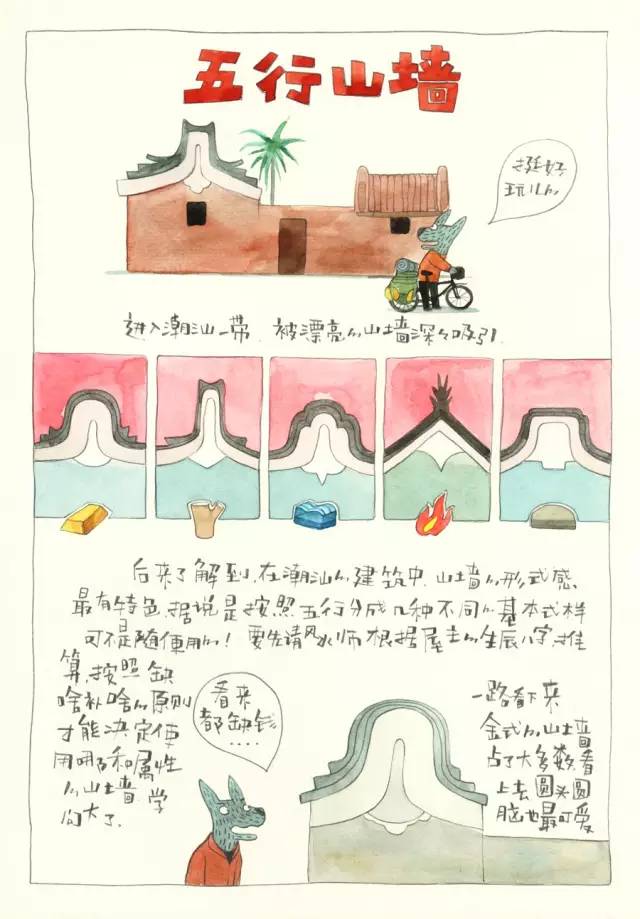 五行山墙
挺好
玩儿的
进入潮汕一带，被漂亮的山墙深々吸引.
后来了解到,在潮汕的建筑中,山墙的形式感
最有特色.据说是按照五行分成几种不同的基本式样
可不是随便用的！要先请风水师根据屋主的生辰八字推
算,按照缺
啥补啥的原则
才能决定使
用哪种属性
的山墙 学
问大了.
看来
都缺钱
....
一路看下来
金式的山墙
占了大多数看
上去圆头圆
脑也最可爱